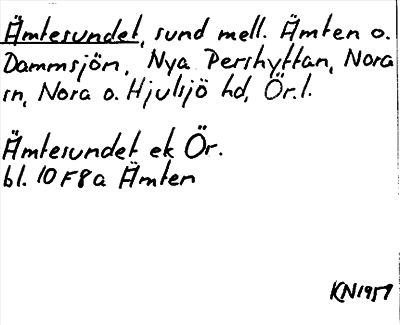 Ämtesundet, sund mell. Ämten o.
Dammsjön, Nya Pershyttan, Nora
sn, Nora o. Hjulsjö hd, Ör.l.
Ämtesundet ek Ör.
bl. 10F8a Ämten
KN1959